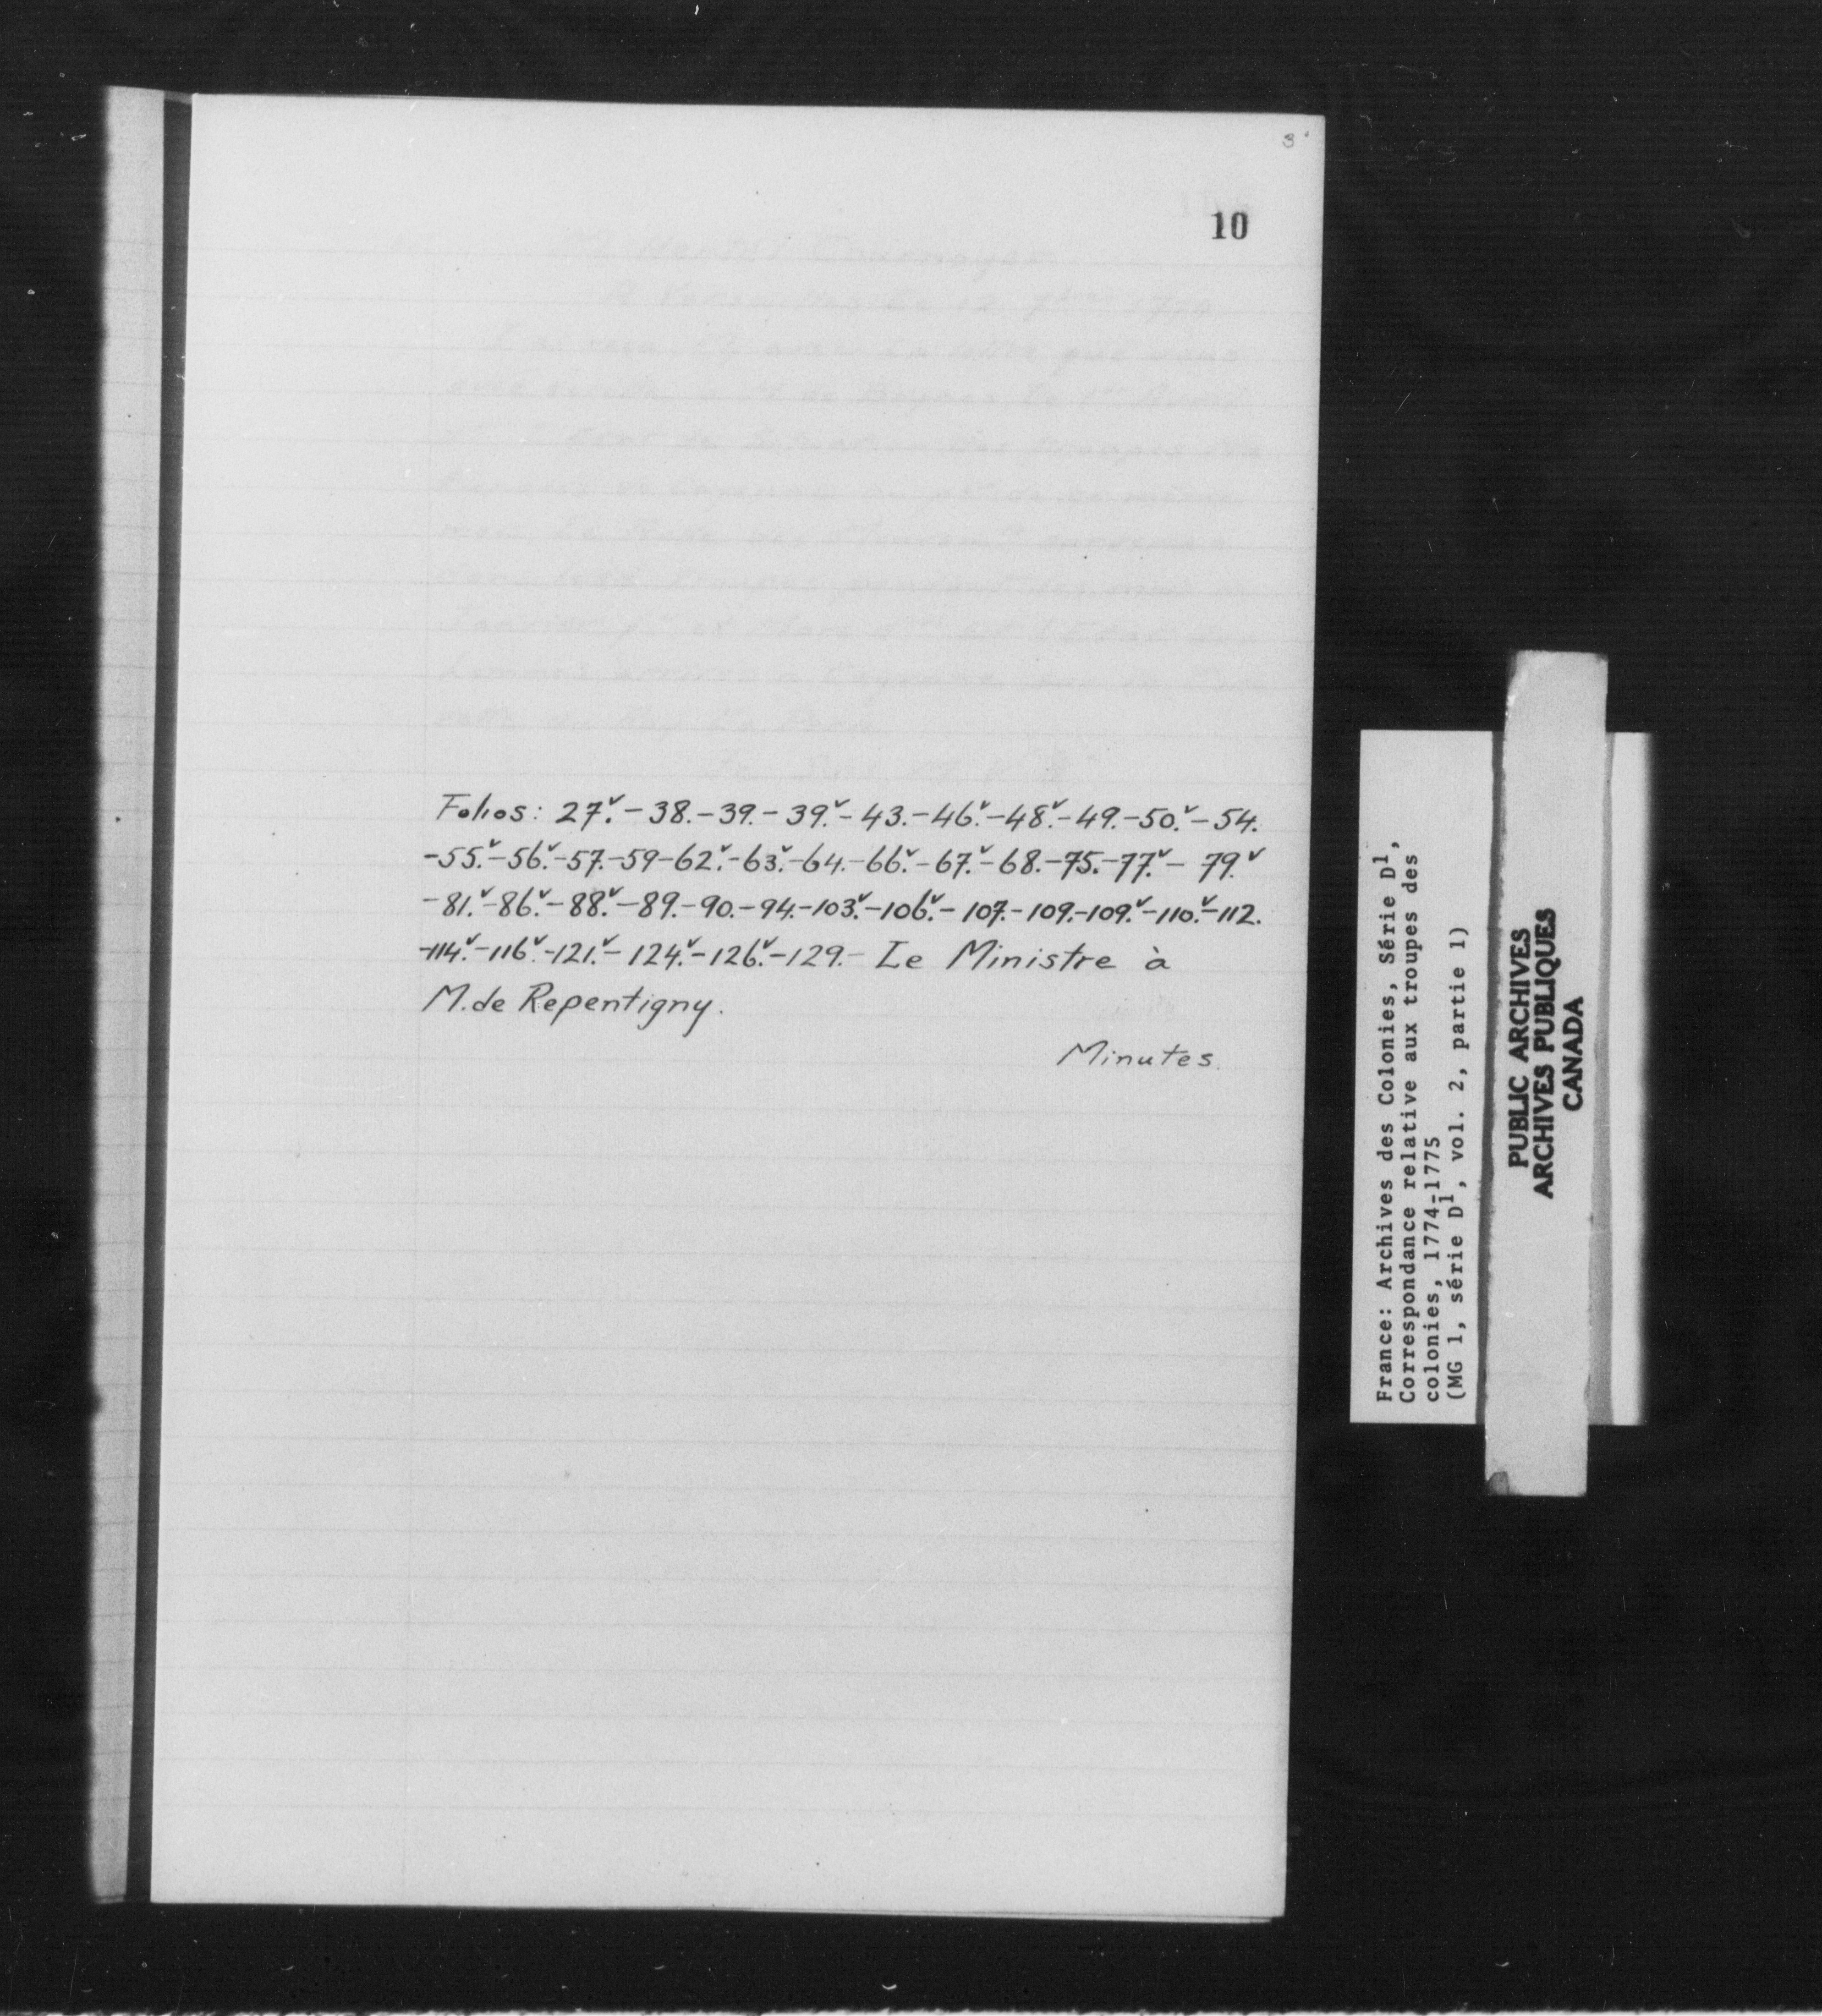 3
10
Folios: 27.v – 38. – 39. – 39.v – 43. – 46.v – 48.v – 49. – 50.v – 54.
– 55.v – 56.v – 57. – 59 – 62.v – 63.v – 64. – 66.v – 67.v – 68. – 75. – 77.v – 79.v
– 81.v – 86.v – 88.v – 89. – 90. – 94. – 103.v – 106.v – 107. – 109. – 109.v – 110.v – 112.
– 114.v – 116.v – 121.v – 124.v – 126.v – 129. – Le Ministre à
M. de Repentigny.
Minutes.
France: Archives des Colonies, Série D1,
Correspondance relative aux troupes des
colonies, 1774-1775
(MG 1, série D1, vol. 2, partie 1)
PUBLIC ARCHIVES
ARCHIVES PUBLIQUES
CANADA